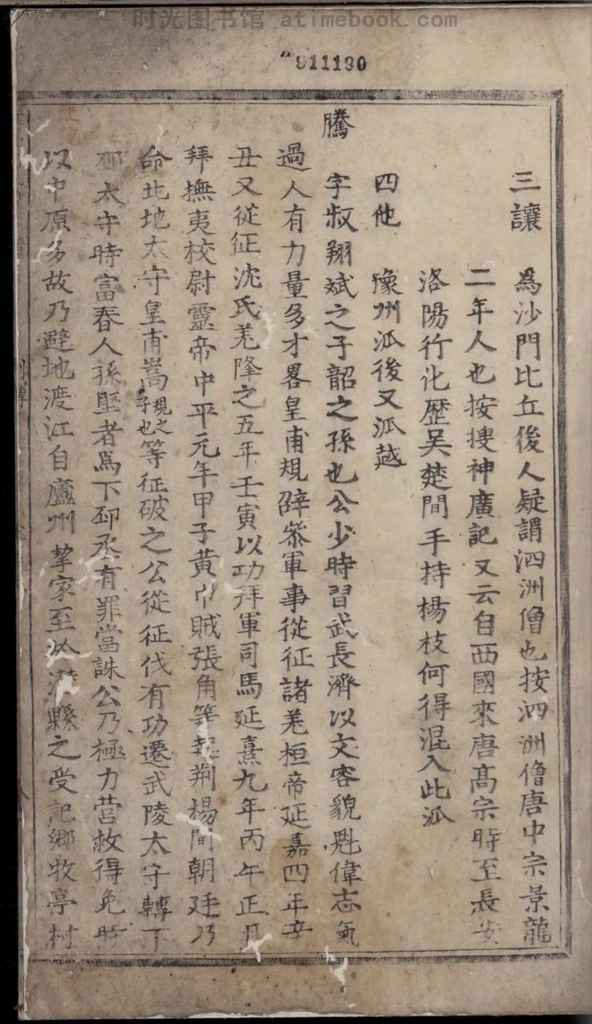 时光图书馆 atimebook.com
911190
三讓 為沙門比丘後人疑謂泗洲僧也按泗洲僧唐中宗景龍
二年人也按搜神廣記又云自西國來唐髙宗時至長安
洛陽行化歴吴楚間手持楊枝何得混入此派
四他 豫州派後又派越
騰
字叔翔斌之子韶之孫也公少時習武長濟以文容貌魁偉志氣
過人有力量多才畧皇甫規辟叅軍事從征諸羌桓帝延嘉四年辛
丑又從征沈氏羌降之五年壬寅以功拜軍司馬延熹九年丙午正月
拜撫夷校尉靈帝中平元年甲子黄巾賊張角等起荆揚間朝廷乃
命北地太守皇甫嵩規之子也等征破之公從征伐有功遷武陵太守轉丁
太守時富春人孫堅者為下邳丞有罪當誅公乃極力营救得免時
以中原多故乃避地渡江自廬州挈家至於縣之受記鄉牧亭村